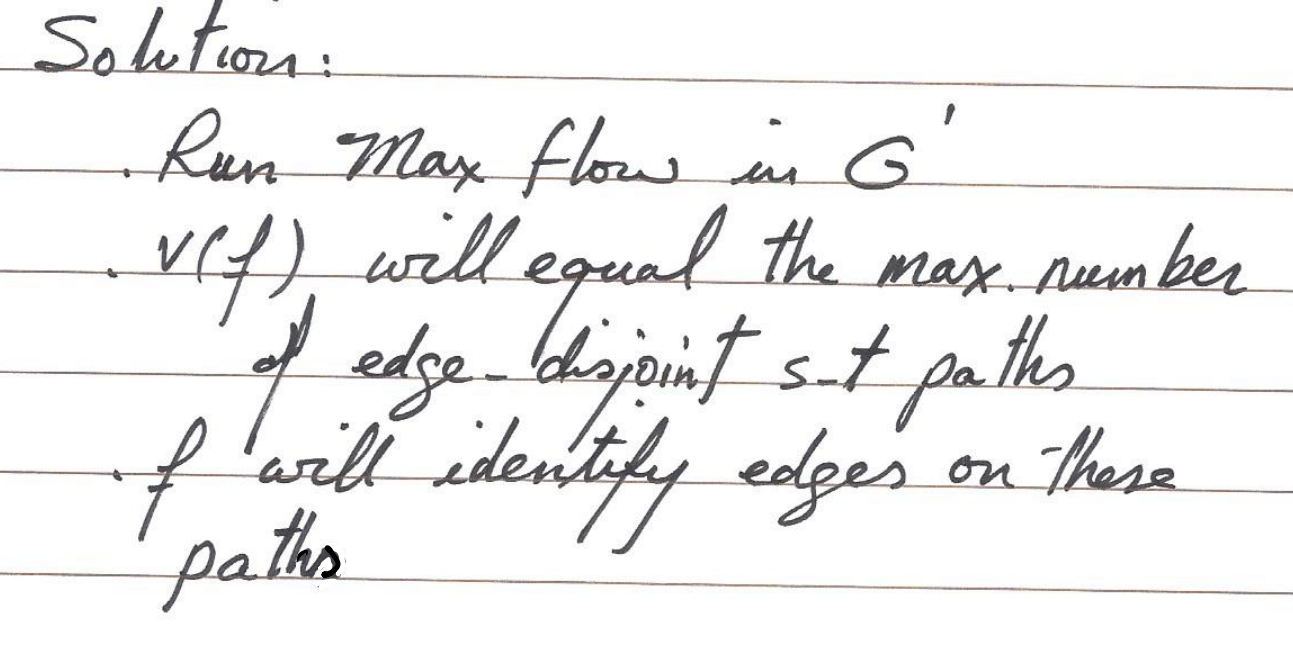 Solution:
. Run Max flow in G'
. v(f) will equal the max. number
of edge-disjoint s-t paths
. f will identify edges on these
paths